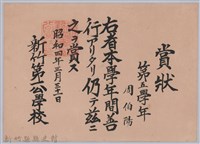 賞狀
第五學年
周伯陽
右者本學年間善
行アリタリ仍テ茲ニ
之ヲ賞ス
昭和四年三月二十日
新竹第一公學校